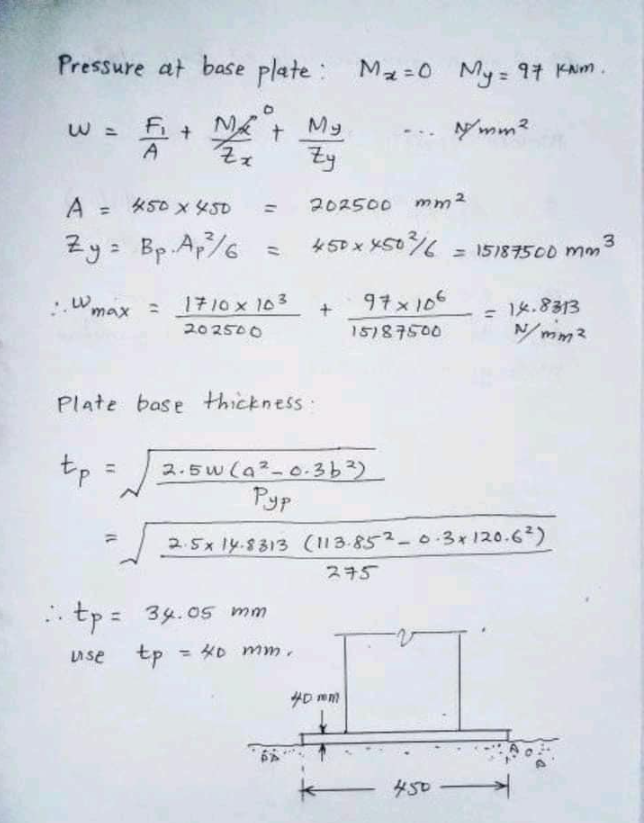 Pressure at base plate: Mx=0 My=97 KNm.
w = F1/A + Mx/Zx 0 + My/Zy ... N/mm²
A = 450 x 450 = 202500 mm²
Zy = Bp.Ap²/6 = 450 x 450²/6 = 15187500 mm³
∴ wmax = 1710 x 10³/202500 + 97 x 10⁶/15187500 = 14.8313 N/mm²
Plate base thickness:
tp = √(2.5w(a²-0.3b²)/Pyp)
= √(2.5x 14.8313 (113.85²-0.3x120.6²)/275)
∴ tp = 34.05 mm
use tp = 40 mm.
40 mm
450